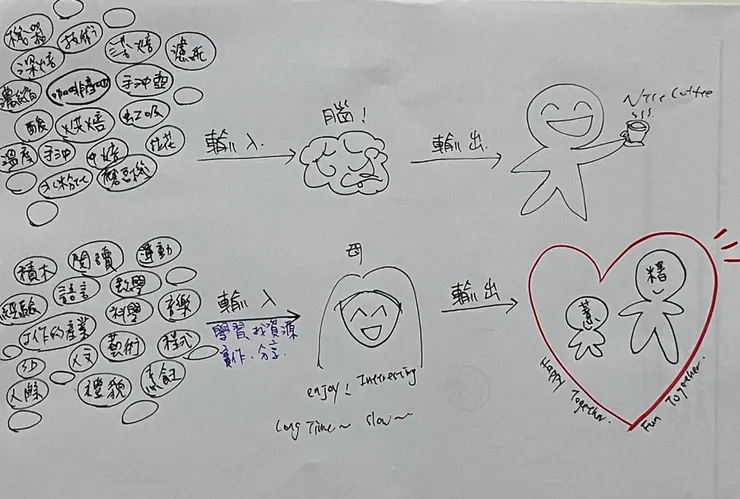 機器
技術
淺焙
濾紙
深焙
濃縮
咖啡豆
手沖壺
酸
烘焙
虹吸
拉花
溫度
手沖
中焙
水粉比
磨豆機
輸入
腦!
輸出
Nice Coffee
積木
閱讀
運動
經驗
語言
數學
科學
音樂
工作的產業
人文
藝術
程式
3D
人際
禮貌
烹飪
輸入
學習、找資源
實作、分享.
母
enjoy! Interesting
Long Time~ slow~
輸出
薏
糬
Happy Together.
Fun Together.